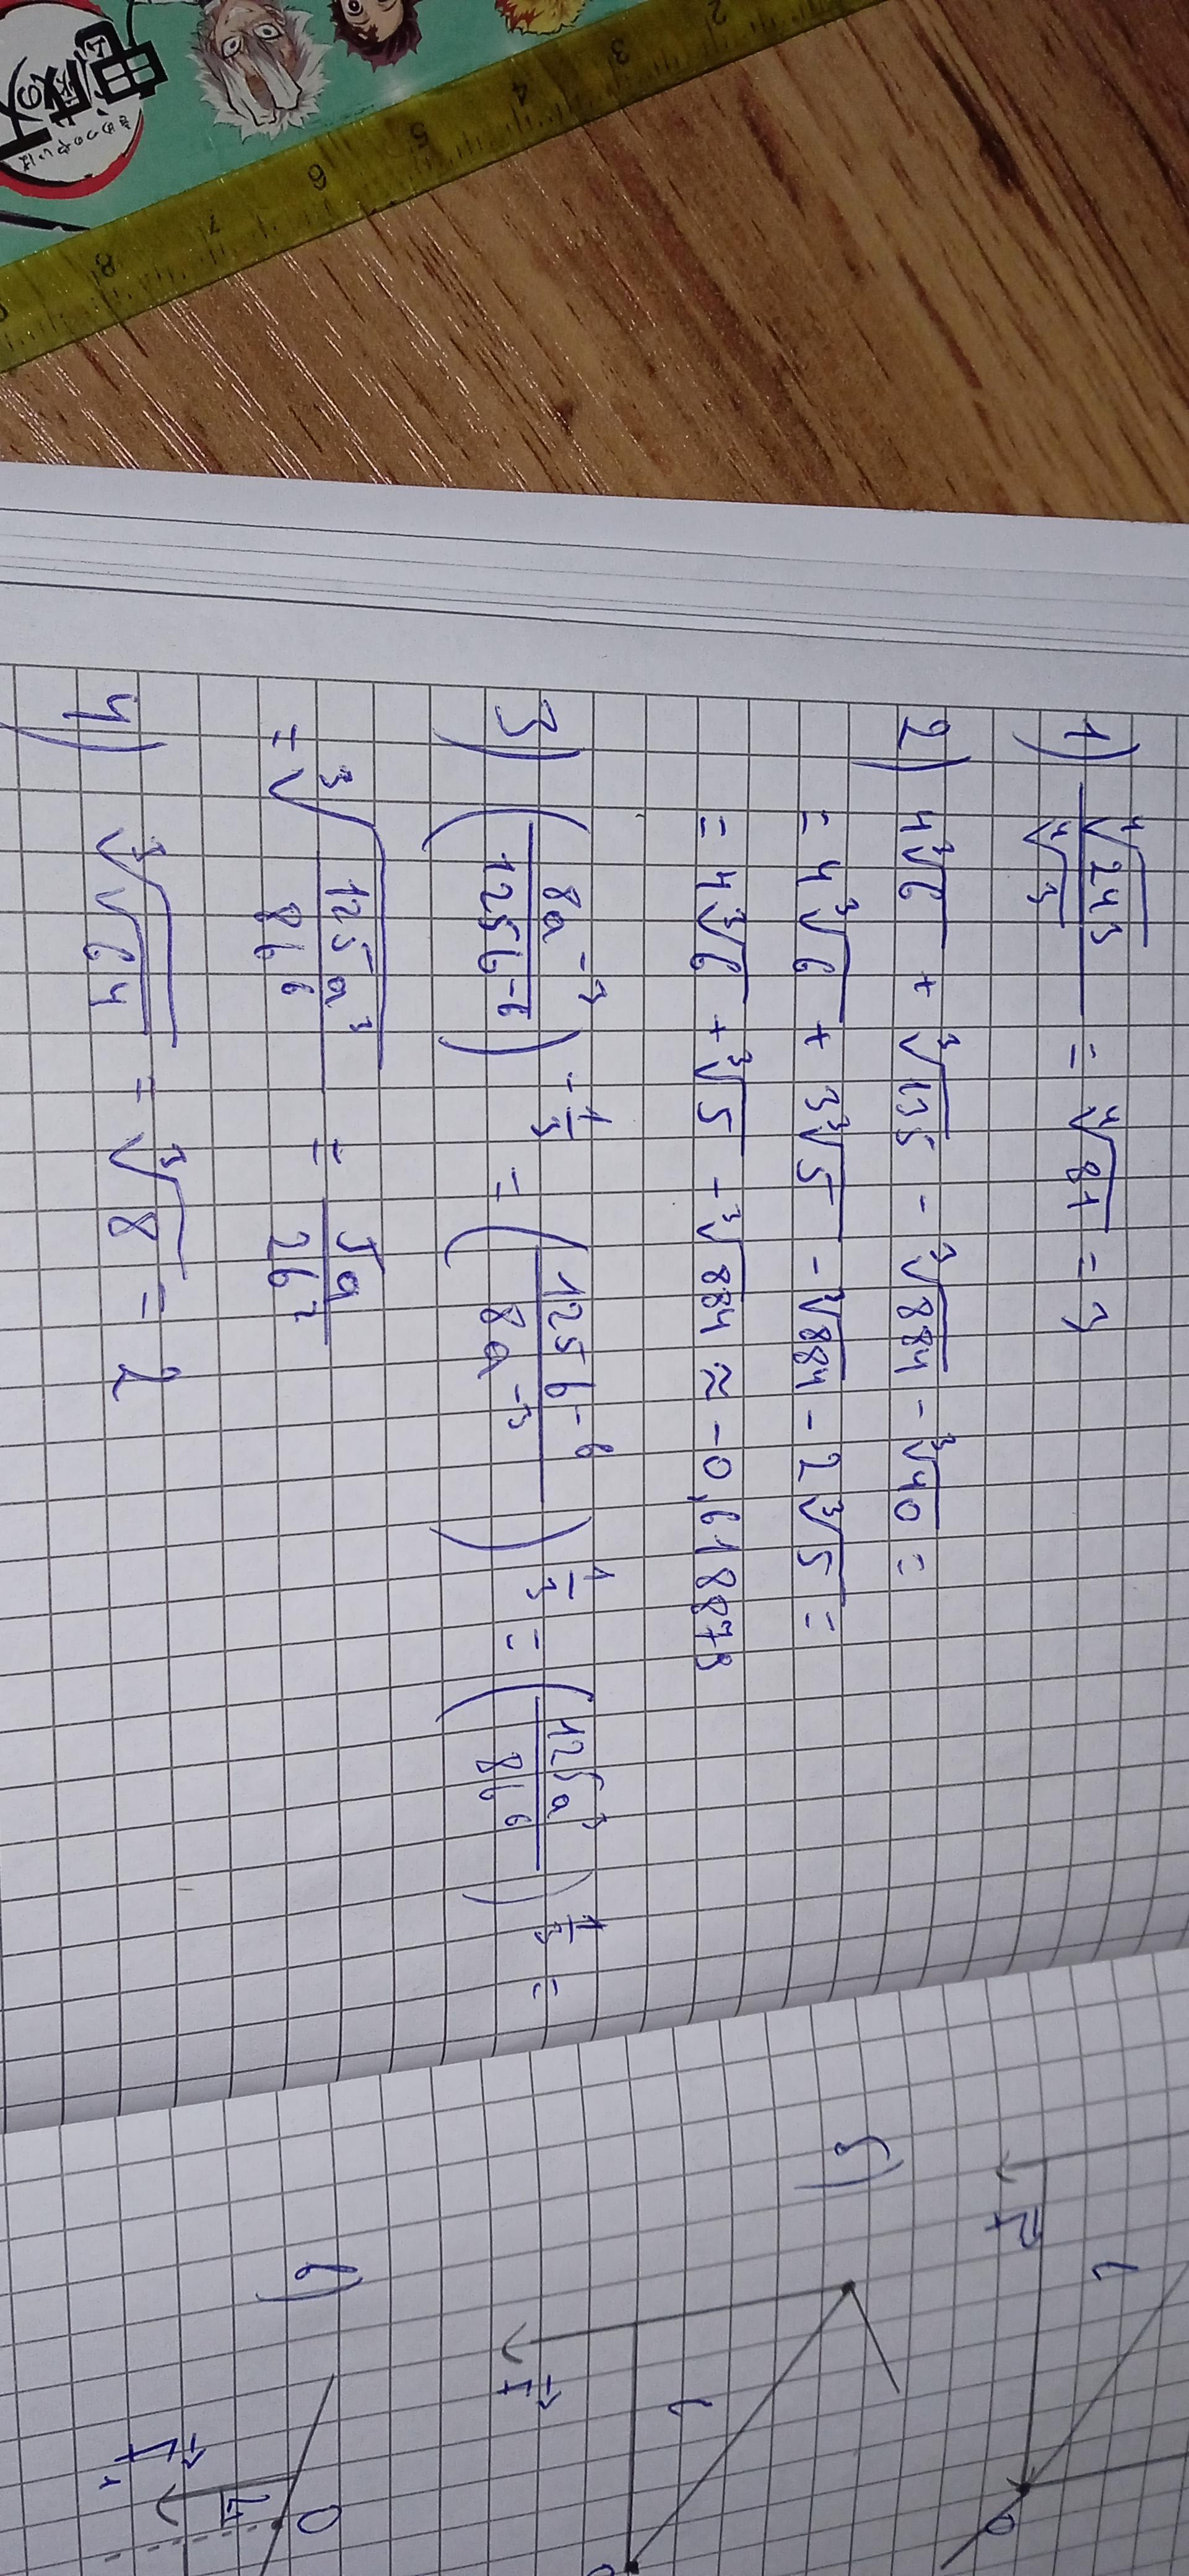 1) ⁴√243 / ⁴√3 = ⁴√81 = 3
2) 4³√6 + ³√135 - ³√884 - ³√40 =
= 4³√6 + 3³√5 - ³√884 - 2³√5 =
= 4³√6 + ³√5 - ³√884 ≈ -0,618873
3) (8a⁻³ / 125b⁻⁶)^(-1/3) = (125b⁻⁶ / 8a⁻³)^(1/3) = (125a³ / 8b⁶)^(1/3) =
= ³√(125a³ / 8b⁶) = 5a / 2b²
4) ³√√64 = ³√8 = 2
2
3
4
5
6
7
8
l
F
б)
l
F
в)
O
F